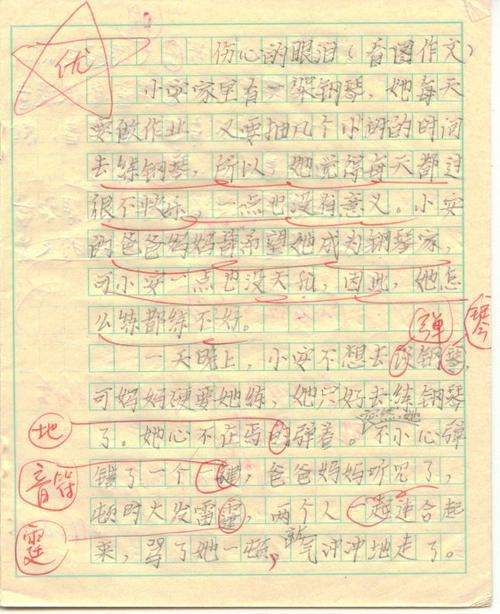 优
伤心的眼泪(看图作文)
小安家里有一架钢琴,她每天
要做作业 又要抽几个小时的时间
去练钢琴,所以,她觉得每天都过
很不快乐,一点也没有意义。小安
的爸爸妈妈都希望她成为钢琴家,
可小安一点也没天份,因此,她怎
么练都练不好。
弹 琴
一天晚上,小安不想去谈钢琴,
可妈妈硬要她练,她只好去练钢琴
地
了。她心不在焉的弹着。不小心弹
音符
错了一个键,爸爸妈妈听见了,
顿时大发雷霆,两个人一起连合起
霆
来,骂了她一顿,就气冲冲地走了。